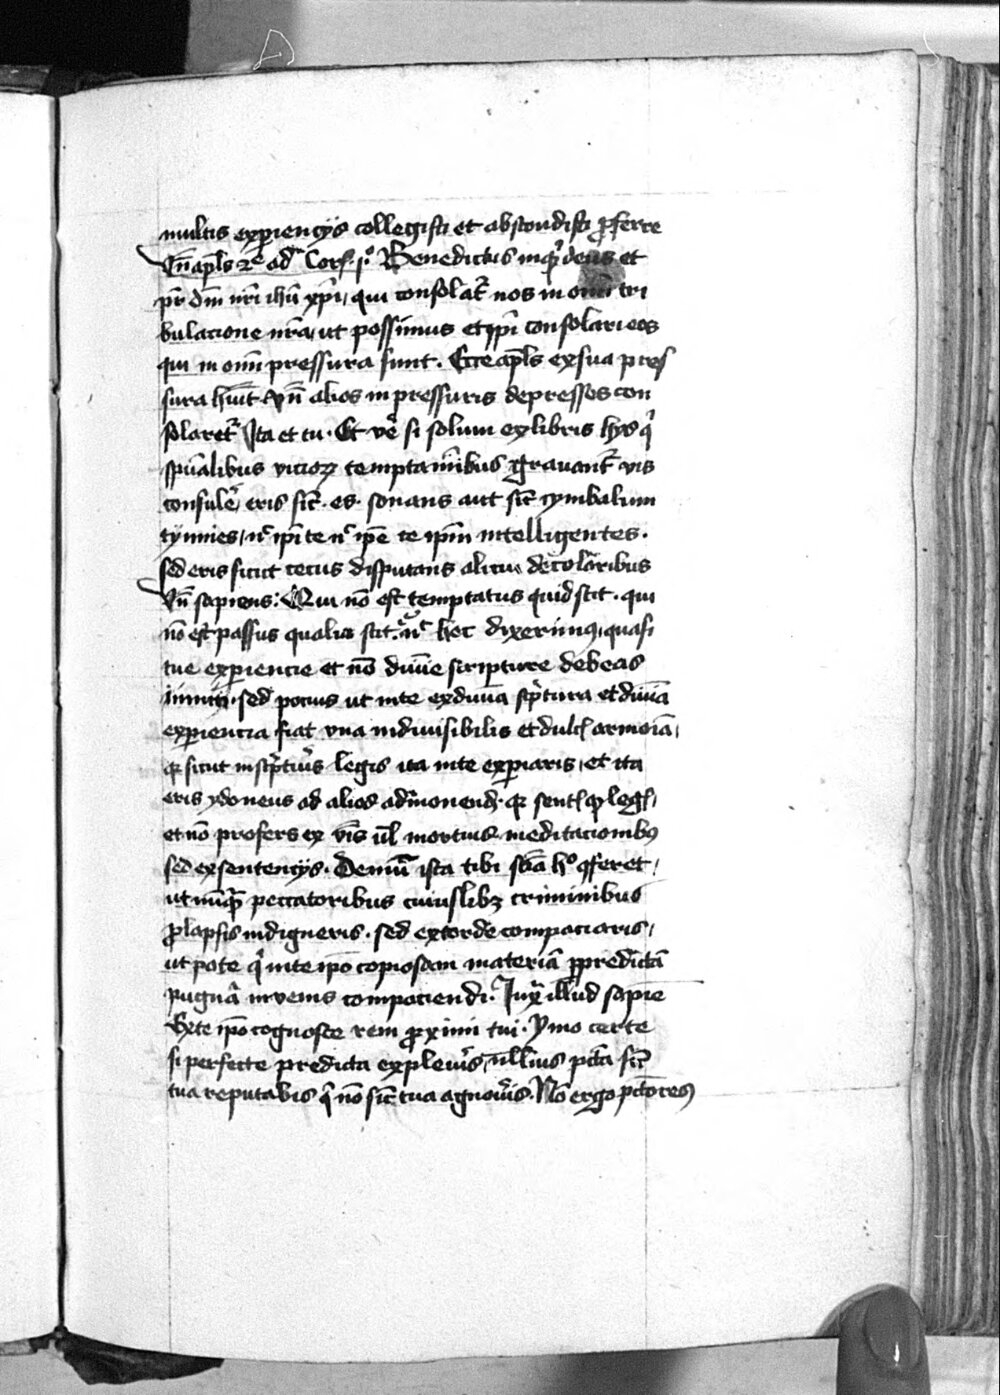 multis experiencijs collegisti et abscondisti proferre
Vn̄ apl̄s 2ᵉ ad Cor. j°. Benedictus inquit deus et
pr̄ dn̄i nr̄i ihū xp̄i, qui consolat̄ nos in omni tri
bulacione nr̄a, ut possimus et ip̄i consolari eos
qui in om̄i pressura sunt. Ecce apl̄s ex sua pres
sura huit vn̄ alios in pressuris depressos con
solaret̄ Ita et tu. Et vē si solum ex libris hys q̄
sp̄ualibus vicioꝝ temptam̄ibus grauant̄ vis
consulē, eris sic̄. es. sonans aut sic̄ cymbalum
tynnies, nc̄ ip̄i te nc̄ ip̄e te ip̄m intelligentes.
sed eris sicut cecus disputans alicui de coloribus
Vn̄ sapiens: Qui nō est temptatus quid scit. qui
nō est passus qualia scit. nc̄ hec dixerimus, quasi
tue experiencie et nō diuīe scripture debeas
inniti. sed pocius ut in te ex diuīa sc̄ptura et diuīa
experiencia fiat vna indiuisibilis et dulcis armoīa,
qꝛ sicut in sc̄ptur̄is legis ita in te experiaris, et ita
eris ydoneus ad alios admonend̄. qꝛ sentis qd̄ legis,
et nō profers ex viīs ul̄ mortuis meditacionibus
sed ex sentencijs. Demū ista tibi sciā h° conferet,
ut nūquā peccatoribus cuiuslibꝫ criminibus
prolapsis indigneris. sed ex corde compaciaris,
ut pote q̄ in te ip̄o copiosam materiā per predictā
pugnā invenis compaciendi. Iux̄ illud sapīe
Ex te ip̄o cognosce rem proximi tui. Ymo certe
si perfecte predicta expleūis, nullius pctā sic̄
tua reputabis q̄ nō sic̄ tua agnoūis. Nō ergo pctōres